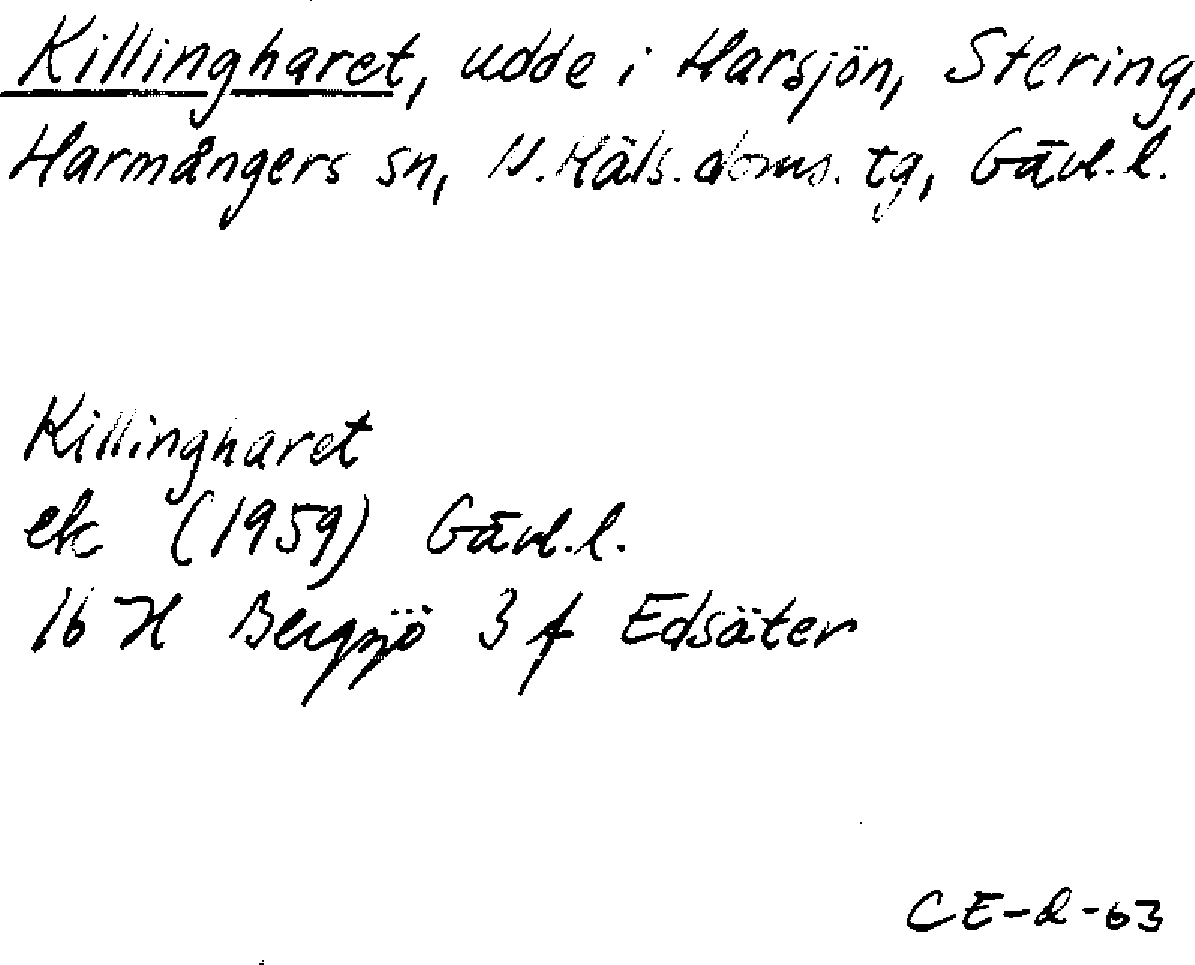 Killingharet, udde i Harsjön, Stering,
Harmångers sn, N. Häls. doms. tg, Gävl. l.
Killingharet
ek (1959) Gävl. l.
16 H Bergsjö 3 f Edsäter
CE-R-63